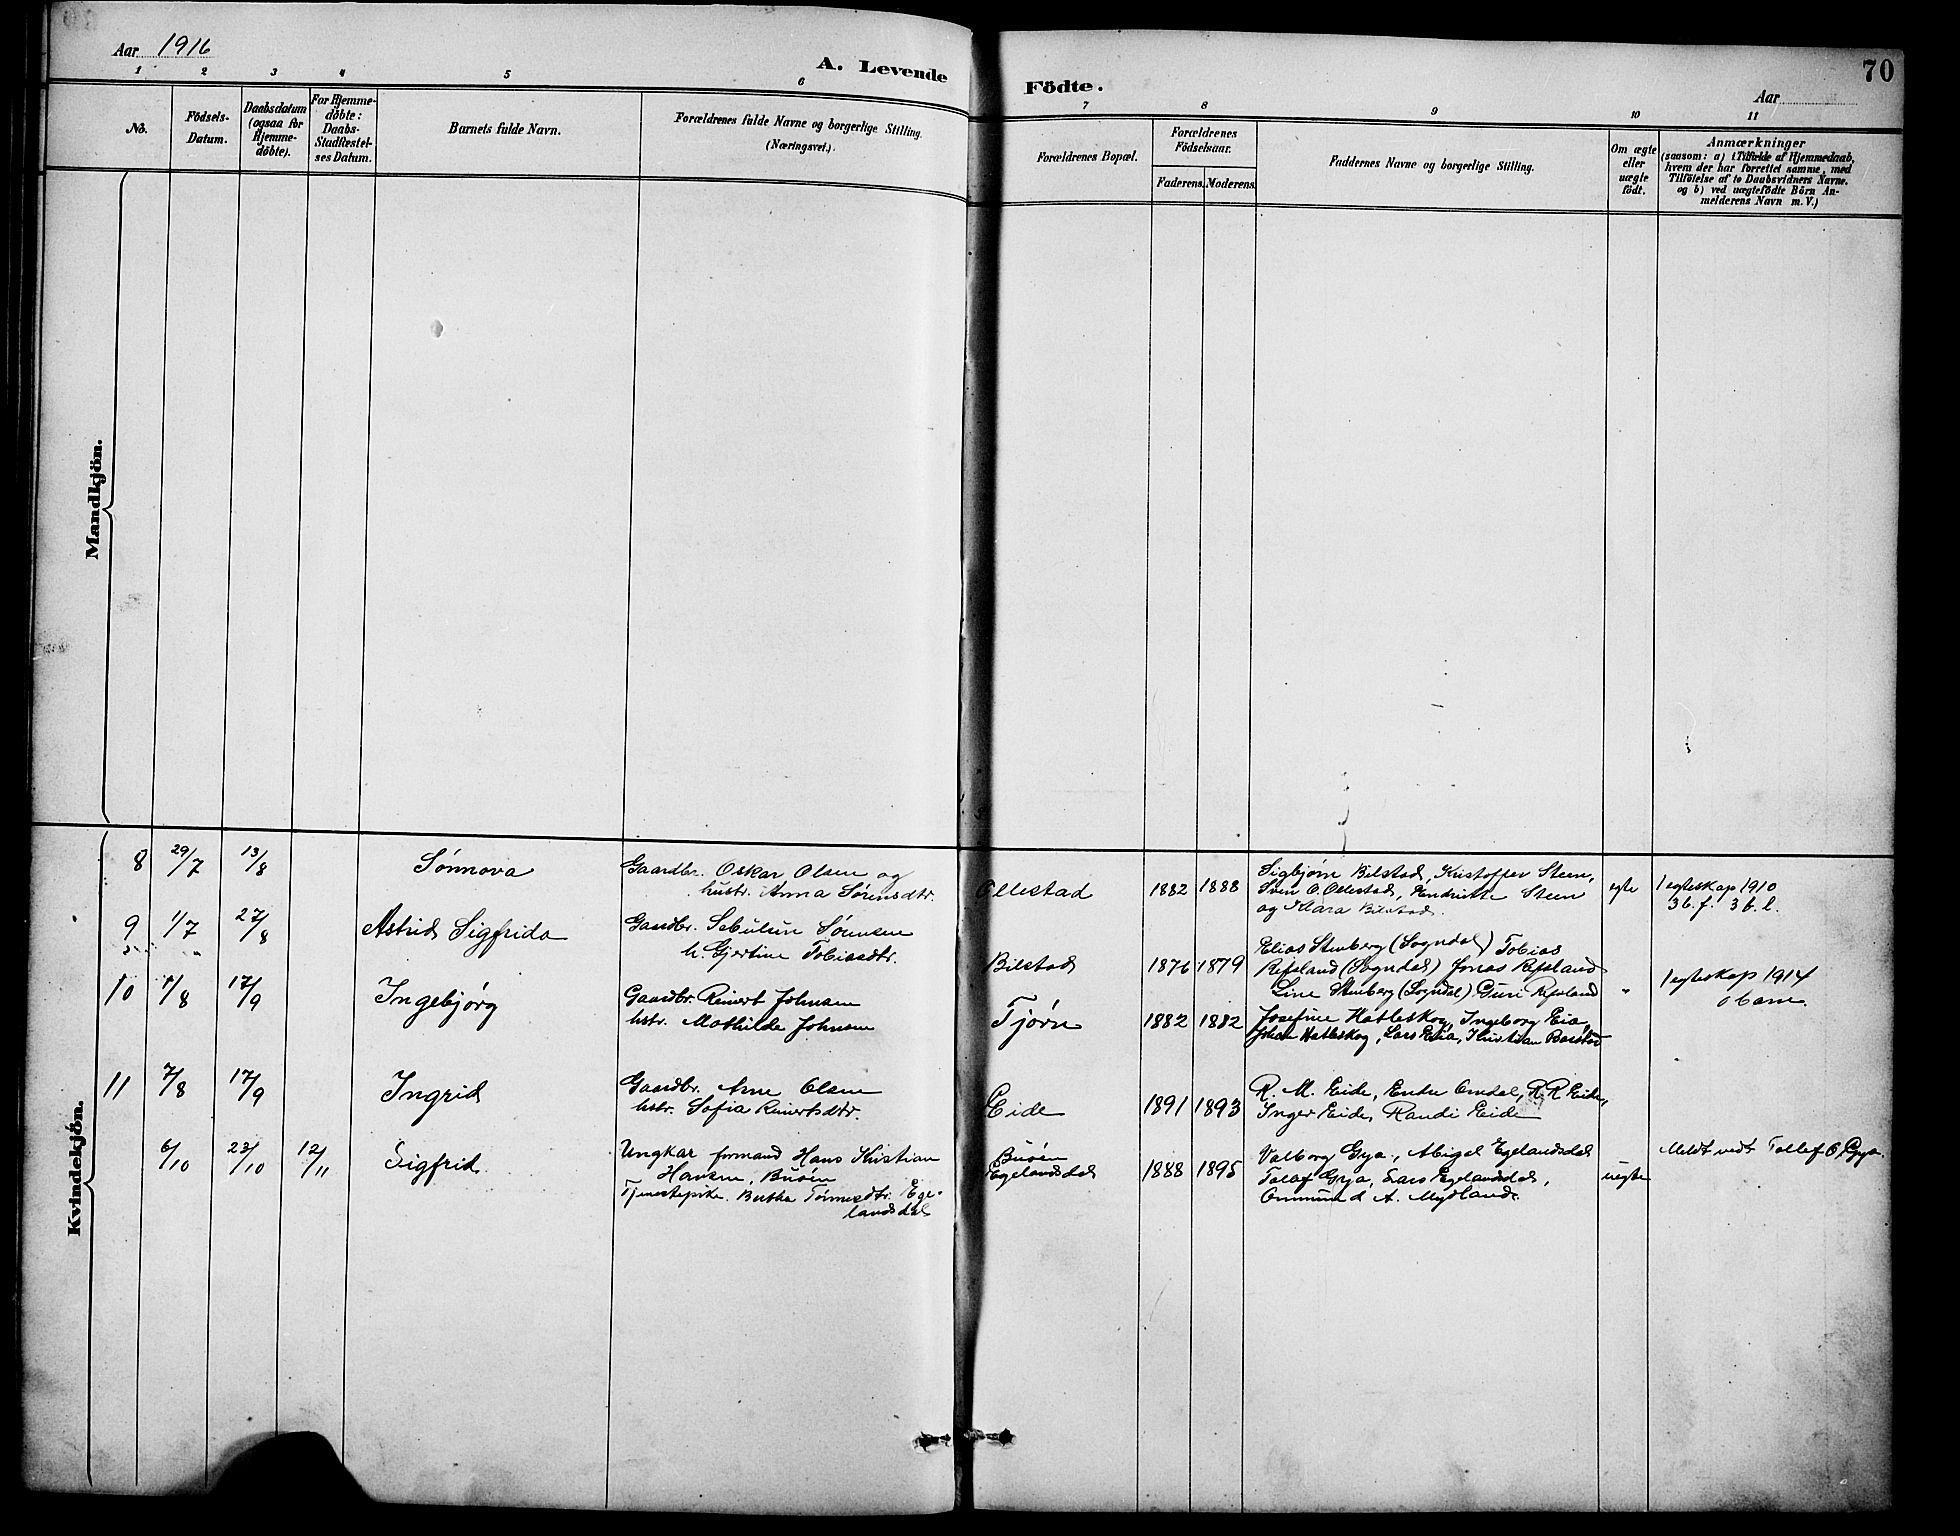 Aar 1916
A. Levende
Födte.
Aar
70
1 2 3 4 5 6 7 8 9 10 11
No.
Födsels-
Datum.
Daabsdatum
(ogsaa for
Hjemme-
döbte).
For Hjemme-
döbte:
Daabs-
Stadfæstel-
ses Datum.
Barnets fulde Navn.
Forældrenes fulde Navne og borgerlige Stilling.
(Næringsvei.)
Forældrenes Bopæl.
Forældrenes
Födselsaar.
Faderens. Moderens.
Faddernes Navne og borgerlige Stilling.
Om ægte
eller
uægte
födt.
Anmærkninger
(saasom: a) i Tilfælde af Hjemmedaab,
hvem der har forrettet samme, med
Tilföielse af to Daabsvidners Navne.
og b) ved uægtefödte Börn An-
melderens Navn m. V.)
Mandkjön.
Kvindekjön.
8 29/7 13/8 Sønnova
Gaardbr. Oskar Olsen og
hustr. Anna Sørensdtr.
Ollestad 1882 1888
Sigbjørn Bilstad, Kristoffer Steen,
Sven O. Ollestad, Steen
og Bilstad.
egte
1 egteskap 1910
3 b. f. 3 b. l.
9 1/7 27/8 Astrid Sigfrida
Gaardbr. Sørensen
h. Gjertine Tobiasdtr.
Bilstad 1876 1879
Elias Stenberg (Sogndal) Tobias
Refsland (Sogndal) Jonas Refsland
Line Stenberg (Sogndal) Guri Refsland
"
1 egteskap 1914
0 barn.
10 1/8 17/9 Ingebjørg
Gaardbr. Reinert Johnsen
hstr. Mathilde Johnsen
Tjørn 1882 1882
Josefine Hatleskog, Ingeborg Eia,
Johan Hatleskog, Lars Eia, Kristian
11 7/8 17/9 Ingrid
Gaardbr. Arne Olsen
hstr. Sofia Reinertsdtr.
Eide 1891 1893
R. M. Eide, Endre Omdal, R R Eide,
Inger Eide, Randi Eide
6/10 23/10 12/11 Sigfrid
Ungkar formand Hans Kristian
Hansen, Buøen
Tjenestepike Bertha Tønnesdtr. Ege-
landsdal
Buøen
Egelandsdal 1888 1895
Valborg Gya, Abigal Egelandsdal
Tolaf Gya, Lars Egelandsdal,
Ommund A. Mydland.
uegte
Meldt vedt Tollef O. Gya.